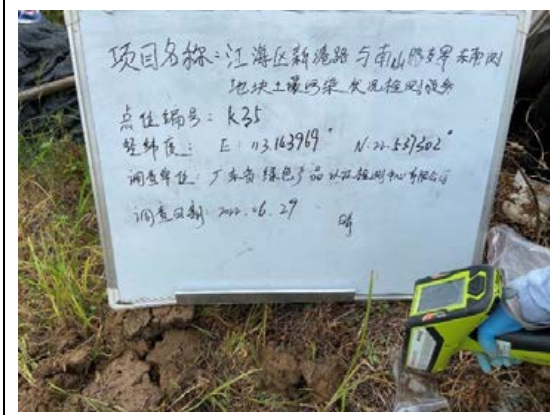 项目名称:江海区新港路与南山路交界东南侧
地块土壤污染状况检测服务
点位编号:K35
经纬度: E:113.163969° N:22.537302°
调查单位:广东省绿色产品认证检测中心有限公司
调查日期:2022.06.29 晴